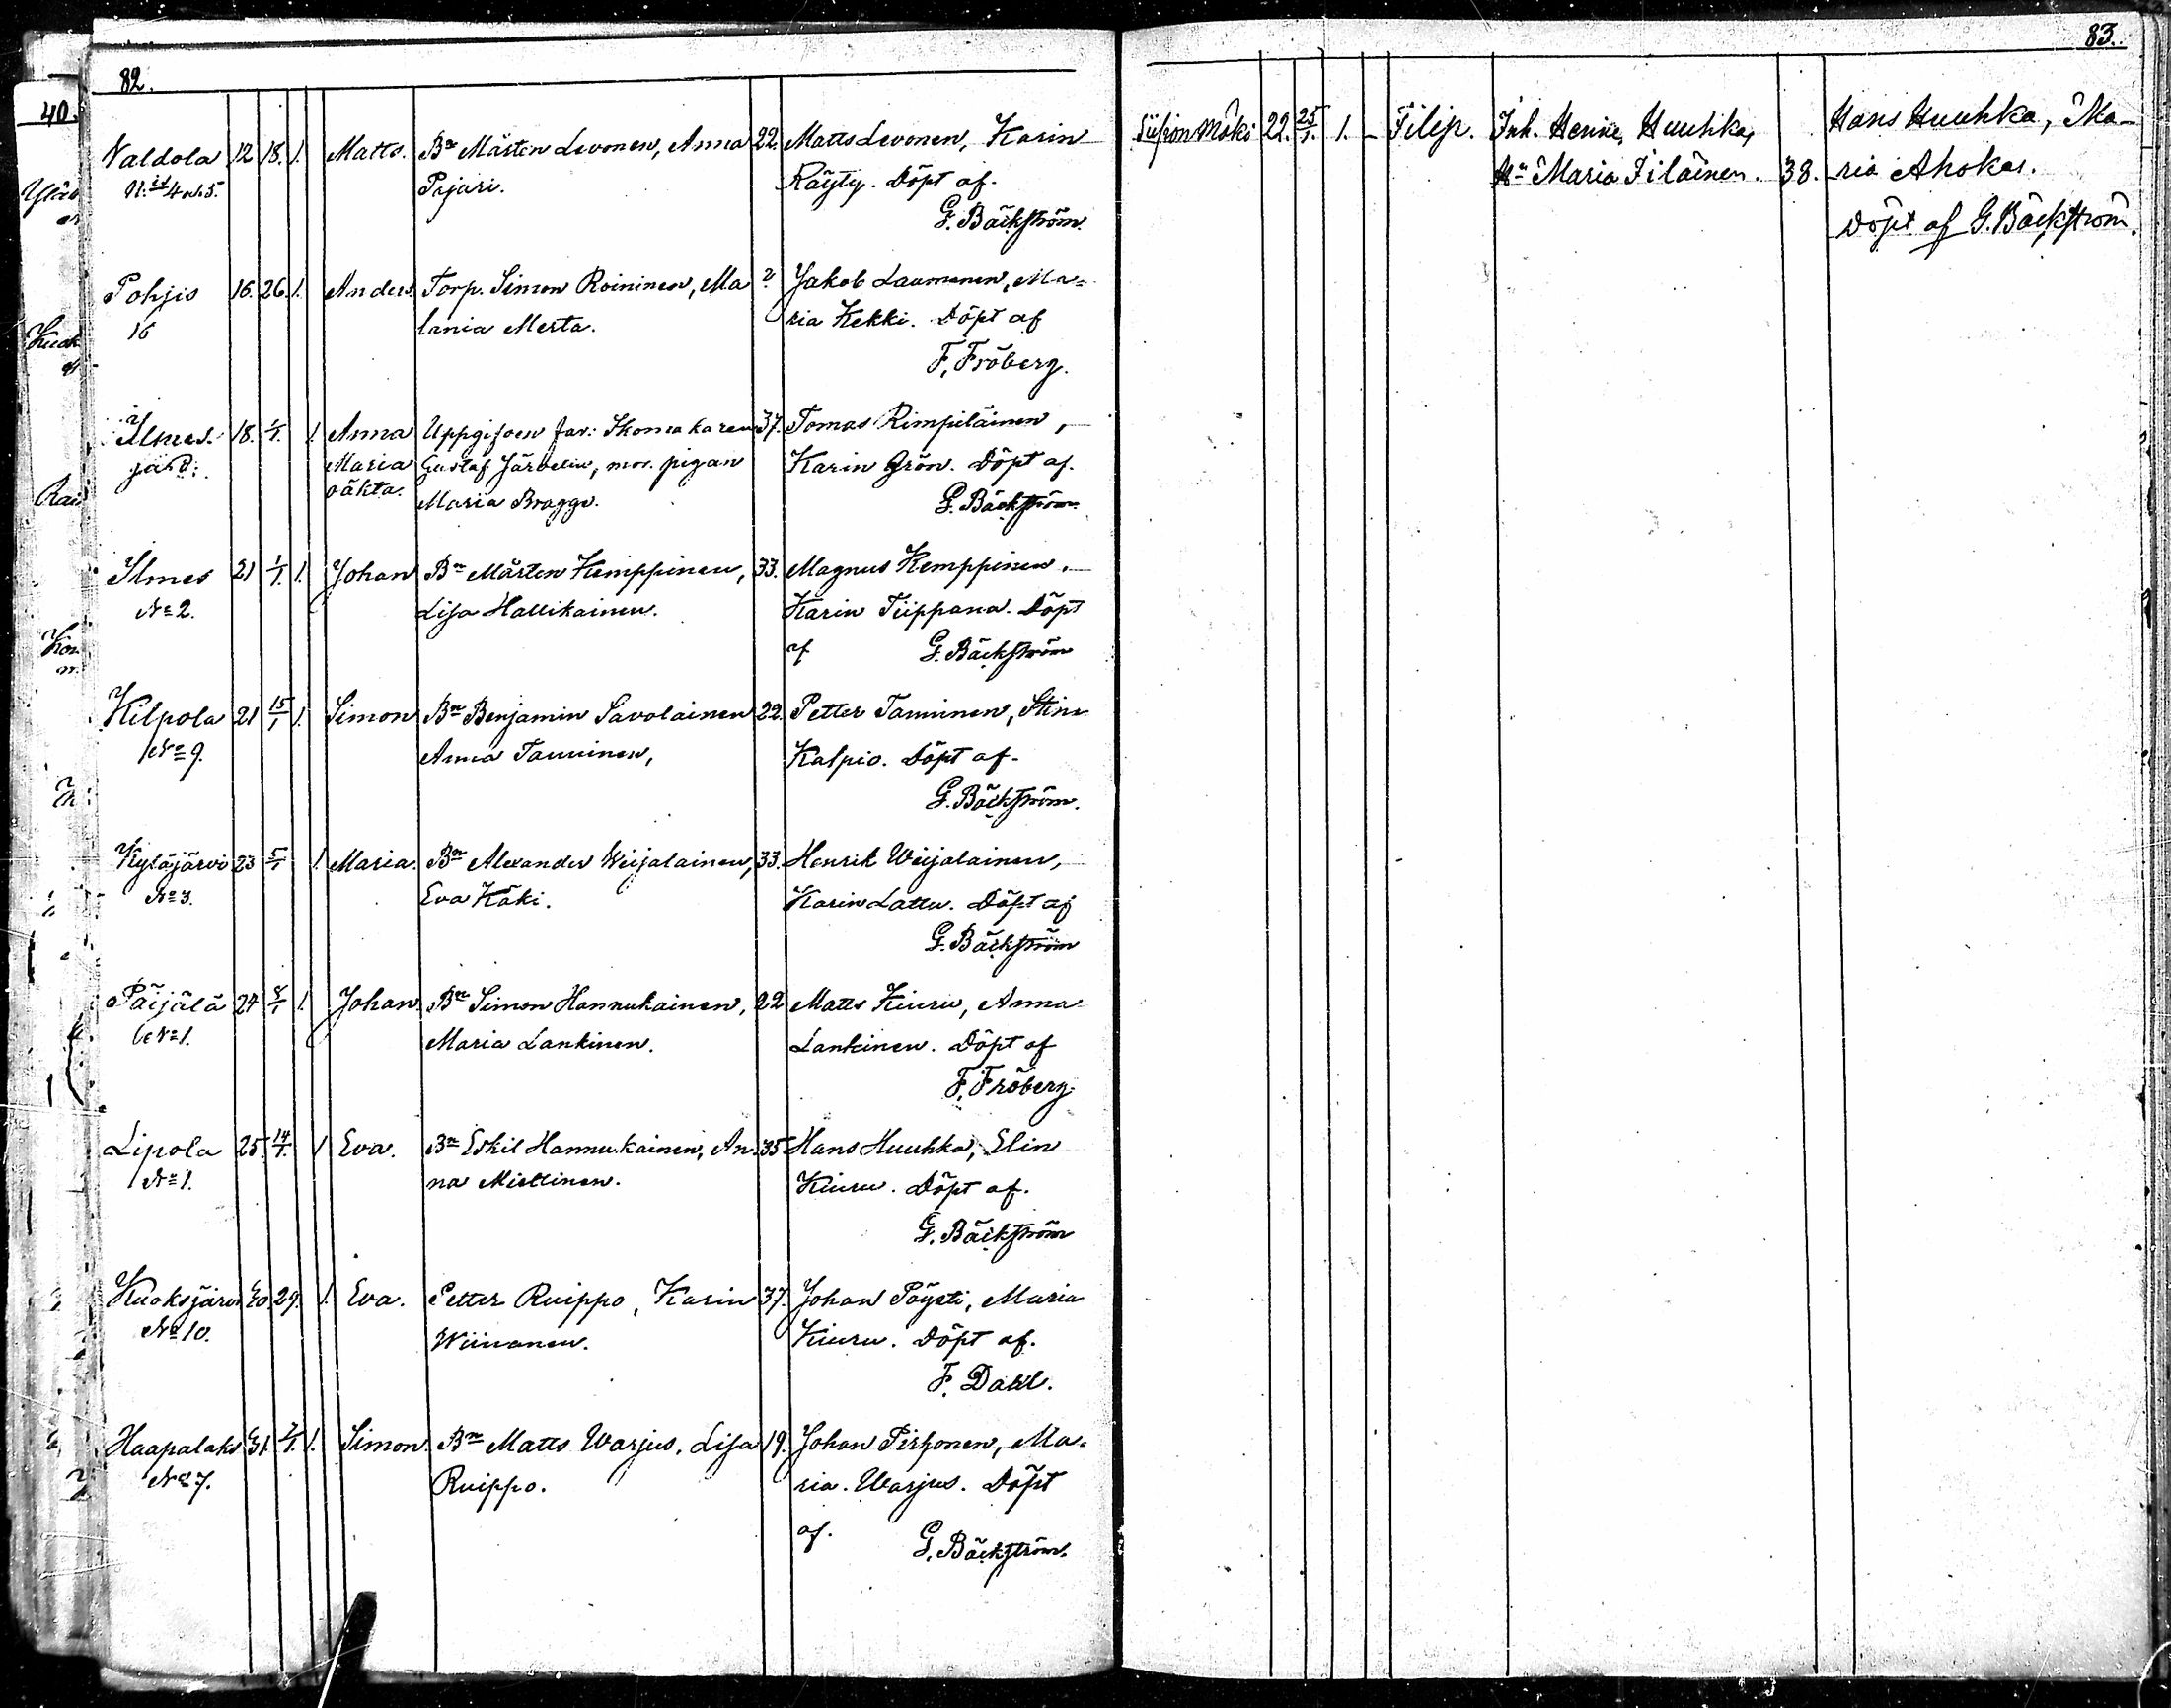 82.
40.
Valdola 12 18. 1. Matts. Bn Mårten Levonen, Anna 22. Matts Levonen, Karin
4 o. 5. Pajari. Räyty. Döpt af.
G. Bäckström.
Pohjis 16. 26. 1. Anders. Torp. Simon Roininen, Ma ? Jakob Laamanen, Ma=
16 lania Merta. ria Kekki. Döpt af
F. Fröberg.
Ilmes. 18. 1/1. 1. Anna Uppgifven far: Skomakaren 37. Tomas Rimpiläinen,
järvi. Maria Gustaf Järvelin, mor. pigan Karin Grön. Döpt af.
oäkta. Maria Bragge. G. Bäckström
Ilmes 21 1/1. 1. Johan Bn Mårten Kemppinen, 33. Magnus Kemppinen,
No 2. Lisa Hallikainen. Karin Tiippana. Döpt
af G. Bäckström
Kilpola 21 15/1 1. Simon Bn Benjamin Savolainen 22. Petter Tanninen, Stina
No 9. Anna Tanninen, Kalpio. Döpt af.
G. Bäckström.
Kyläjärvi 23 5/1 1 Maria. Bn Alexander Wiijalainen, 33. Henrik Wiijalainen,
No 3. Eva Käki. Karin Lattu. Döpt af
G. Bäckström
Päijälä 24 8/1 1. Johan. Bn Simon Hannukainen, 22 Matts Kiuru, Anna
No 1. Maria Lankinen. Lankinen. Döpt af
F. Fröberg.
Lipola 25. 14/1. 1 Eva. Bn Eskil Hannukainen, An 35 Hans Huuhka, Elin
No 1. na Miettinen. Kiuru. Döpt af.
G. Bäckström
Kuoksjärvi 30. 29. 1. Eva. Petter Ruippo, Karin 37. Johan Pöysti, Maria
No 10. Wiinanen. Kiuru. Döpt af.
F. Dahl.
Haapalaks 31. 2/1. 1. Simon. Bn Matts Warjus, Lisa 19. Johan Pirhonen, Ma=
No 7. Ruippo. ria Warjus. Döpt
af. G. Bäckström.
83.
mäki 22. 25/1. 1. - Filip. Inh. Henric Huuhka, Hans Huuhka, Ma-
Maria Filainen. 38. ria Ahokas.
Döpt af G. Bäckström.